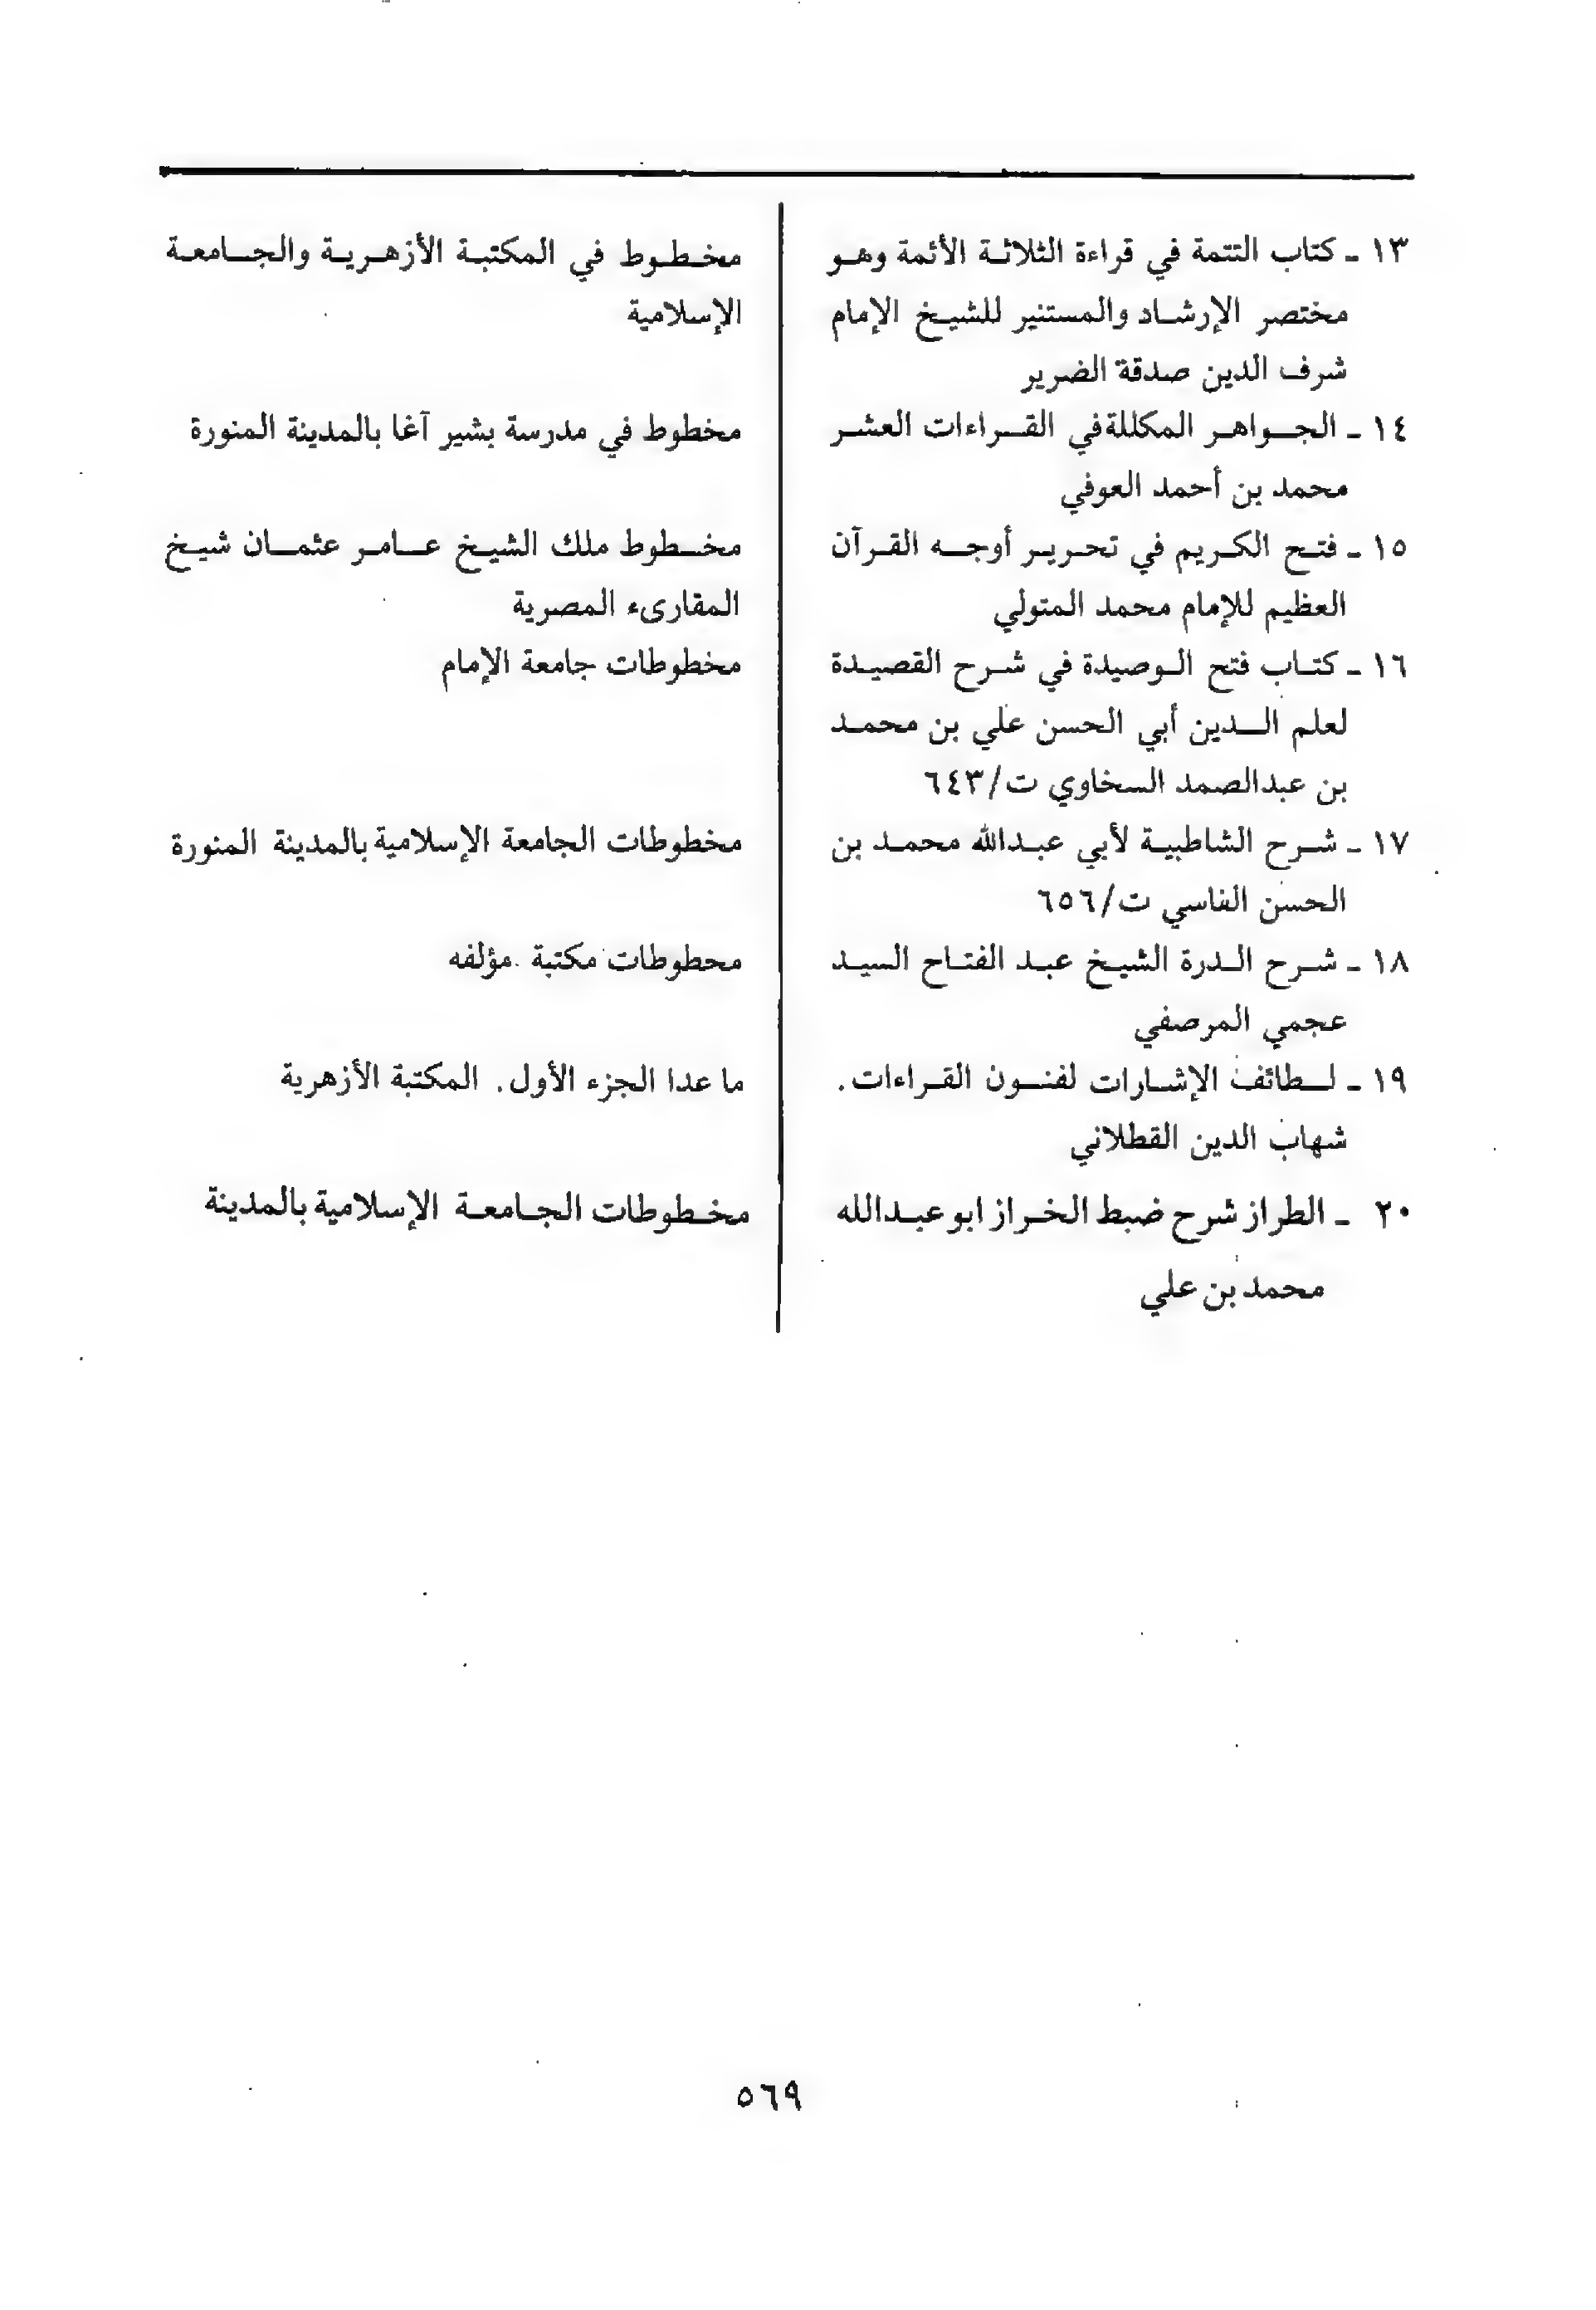 ١٣ - كتاب التتمة في قراءة الثلاثة الأئمة وهو
مختصر الإرشاد والمستنير للشيخ الإمام
شرف الدين صدقة الضرير
مخطوط في المكتبة الأزهرية والجامعة
الإسلامية
١٤ - الجواهر المكللة في القراءات العشر
محمد بن أحمد العوفي
مخطوط في مدرسة بشير آغا بالمدينة المنورة
١٥ - فتح الكريم في تحرير أوجه القرآن
العظيم للإمام محمد المتولي
مخطوط ملك الشيخ عامر عثمان شيخ
المقارىء المصرية
١٦ - كتاب فتح الوصيدة في شرح القصيدة
لعلم الدين أبي الحسن علي بن محمد
بن عبدالصمد السخاوي ت/٦٤٣
مخطوطات جامعة الإمام
١٧ - شرح الشاطبية لأبي عبدالله محمد بن
الحسن الفاسي ت/٦٥٦
مخطوطات الجامعة الإسلامية بالمدينة المنورة
١٨ - شرح الدرة الشيخ عبد الفتاح السيد
عجمي المرصفي
محطوطات مكتبة مؤلفه
١٩ - لطائف الإشارات لفنون القراءات.
شهاب الدين القطلاني
ما عدا الجزء الأول. المكتبة الأزهرية
٢٠ - الطراز شرح ضبط الخراز ابو عبدالله
محمد بن علي
مخطوطات الجامعة الإسلامية بالمدينة
٥٦٩